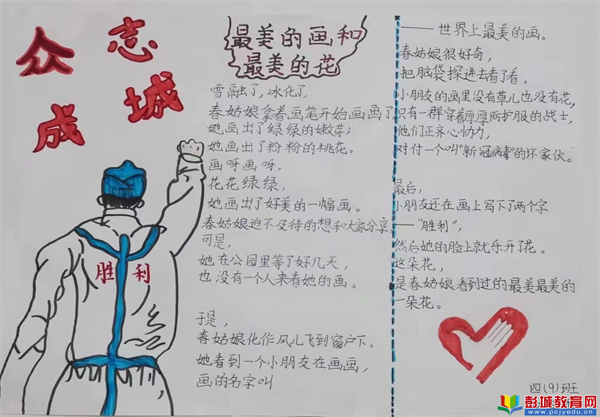 众志
成城
胜利
最美的画和
最美的花
雪融了,冰化了,
春姑娘拿着画笔开始画画了,
她画出了绿绿的嫩芽;
她画出了粉粉的桃花。
画呀画呀,
花花绿绿,
她画出了好美的一幅画。
春姑娘迫不及待的想和大家分享,
可是,
她在公园里等了好几天,
也没有一个人来看她的画。
于是,
春姑娘化作风儿飞到窗户下。
她看到一个小朋友在画画,
画的名字叫
——世界上最美的画。
春姑娘很好奇,
把脑袋探进去看了看。
小朋友的画里没有草儿也没有花,
只有一群穿着厚厚防护服的战士,
他们正齐心协力,
对付一个叫"新冠病毒"的坏家伙。
最后,
小朋友还在画上写下了两个字
——"胜利",
然后她的脸上就乐开了花。
这朵花,
是春姑娘看到过的最美最美的
一朵花。
四(9)班
彭城教育网
www.pcjyedu.cn